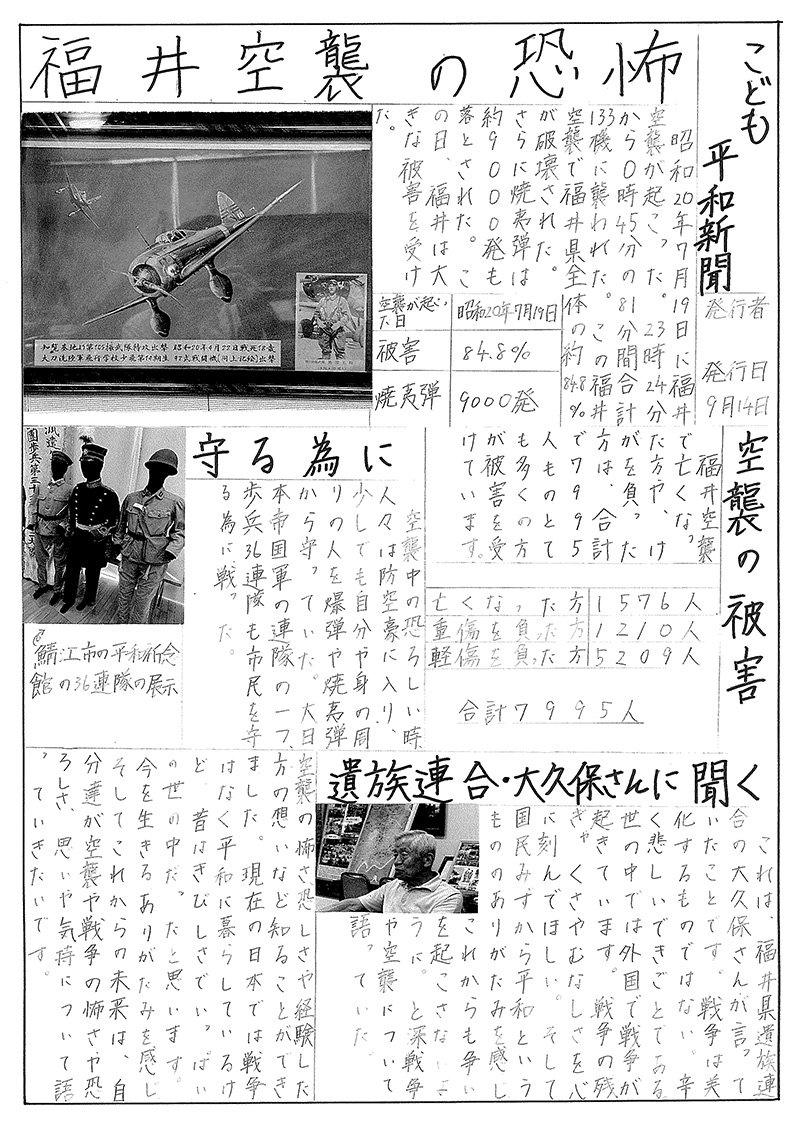 福井空襲の恐怖
こども
平和新聞
発行者
発行日
9月14日
昭和20年7月19日に福井
空襲が起こった。23時24分
から0時45分の81分間合計
133機に襲われた。この福井
空襲で福井県全体の約84.8%
が破壊された。
さらに焼夷弾は
約9000発も
落とされた。こ
の日、福井は大
きな被害を受け
た。
空襲が起こった日 昭和20年7月19日
被害 84.8%
焼夷弾 9000発
昭和20年4月22日戦死18歳
大刀洗陸軍飛行学校少飛第14期生
空襲の被害
福井空襲
で亡くなっ
た方や、け
がを負った
方は、合計
で7995
人ものとて
も多くの方
が被害を受
けています。
亡くなった方 1576人
重傷を負った方 1210人
軽傷を負った方 5209人
合計7995人
守る為に
空襲中の恐ろしい時、
人々は防空豪に入り、
少しでも自分や身の周
りの人を爆弾や焼夷弾
から守っていた。大日
本帝国軍の連隊の一つ、
歩兵36連隊も市民を守
る為に戦った。
團歩兵第三十三
鯖江市の平和祈念
館の36連隊の展示
遺族連合・大久保さんに聞く
これは、福井県遺族連
合の大久保さんが言って
いたことです。戦争は美
化するものではない。辛
く悲しいできごとである
世の中では外国で戦争が
起きています。戦争の残
ぎゃくさやむなしさを心
に刻んでほしい。そして
国民みずから平和という
もののありがたみを感じ
これからも争い
を起こさないよ
うに。と深戦争
や空襲について
語っていた。
空襲の怖さ恐しさや経験した
方の想いなど知ることができ
ました。現在の日本では戦争
はなく平和に暮らしているけ
ど、昔はきびしさでいっぱい
の世の中だったと思います。
今を生きるありがたみを感じ
そしてこれからの未来は、自
分達が空襲や戦争の怖さや恐
ろしさ、思いや気持について語
っていきたいです。